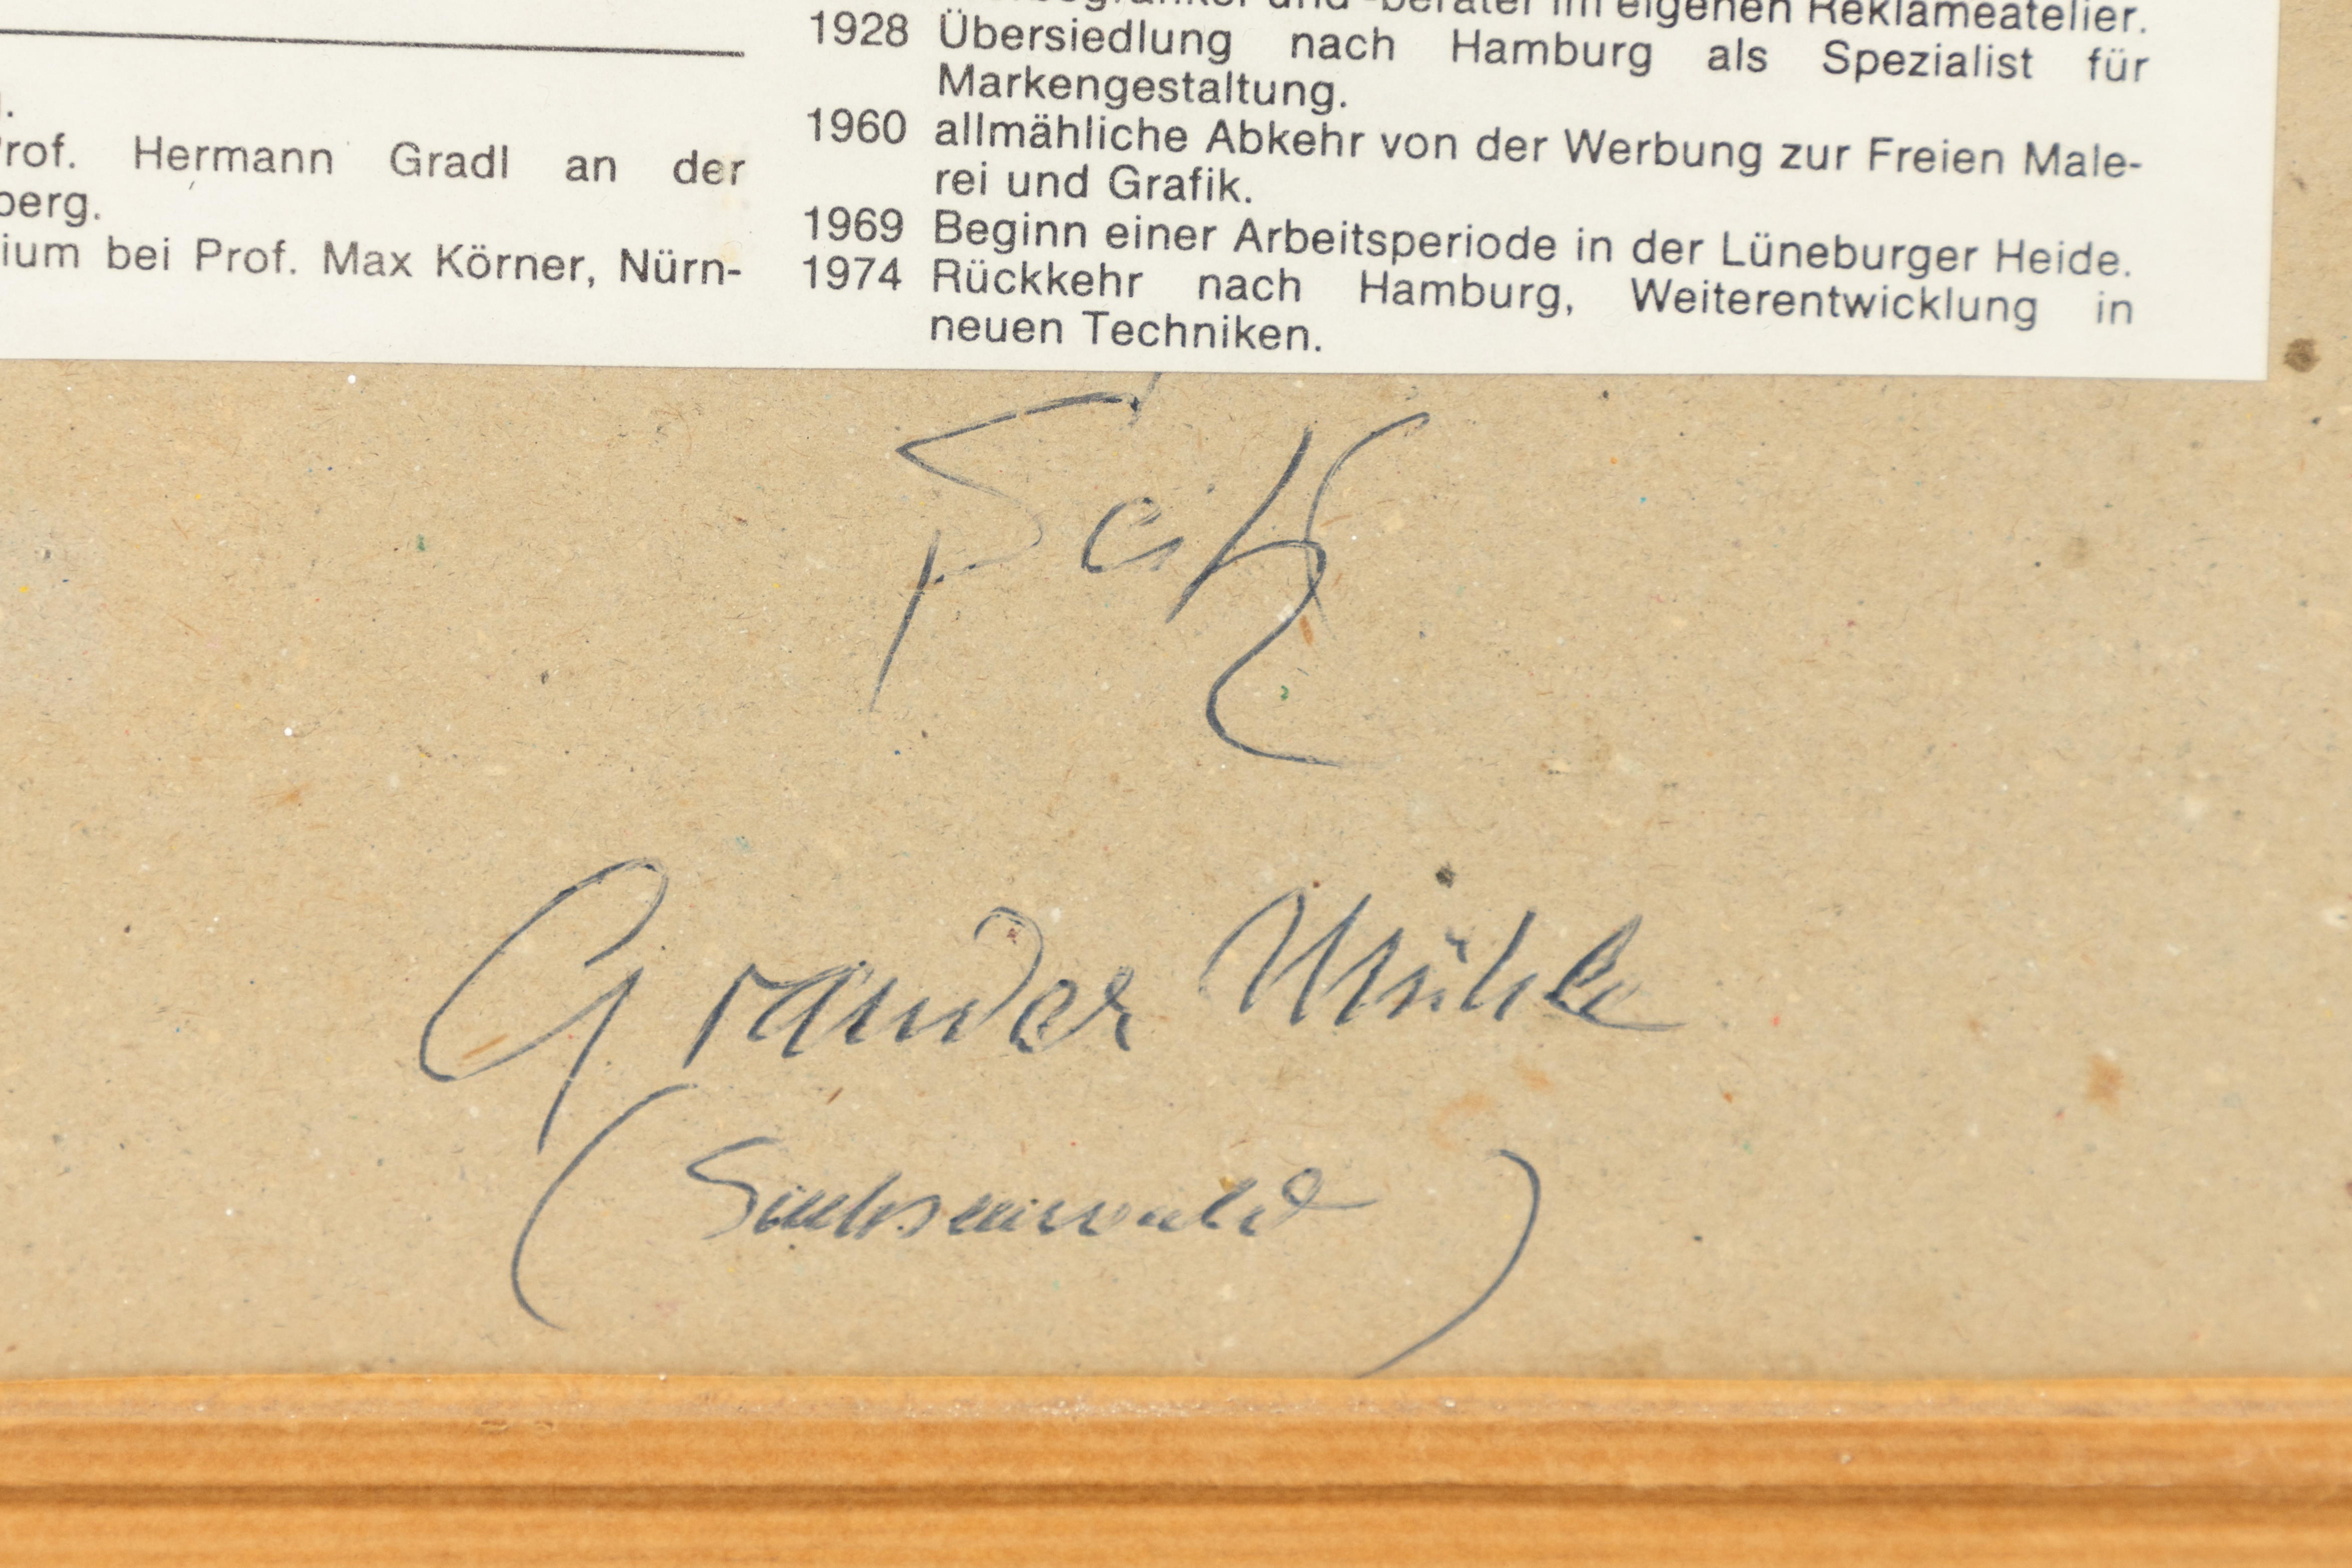 .
Prof. Hermann Gradl an der
berg.
ium bei Prof. Max Körner, Nürn-
und -berater im eigenen Reklameatelier.
1928 Übersiedlung nach Hamburg als Spezialist für
Markengestaltung.
1960 allmähliche Abkehr von der Werbung zur Freien Male-
rei und Grafik.
1969 Beginn einer Arbeitsperiode in der Lüneburger Heide.
1974 Rückkehr nach Hamburg, Weiterentwicklung in
neuen Techniken.
Grander Mühle
(Sachsenwald)